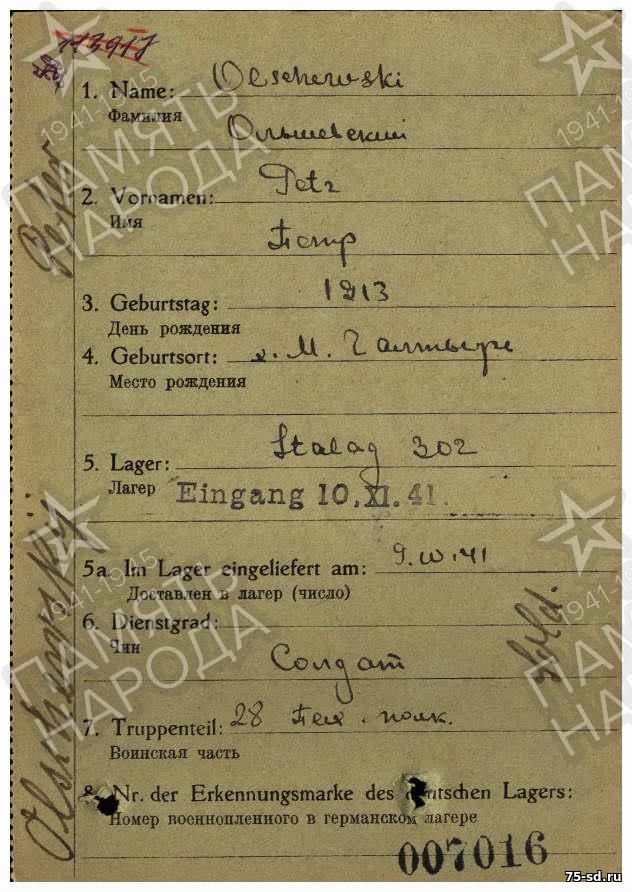 11391J
1. Name: Olschewski
Фамилия
Ольшевский
2. Vornamen: Petr
Имя
Петр
3. Geburtstag: 1913
День рождения
4. Geburtsort: М.
Место рождения
5. Lager: Stalag 302
Лагер Eingang 10.XI.41.
5a. Im Lager eingeliefert am:
Доставлен в лагер (число)
6. Dienstgrad:
Чин
Солдат
7. Truppenteil: 28 Пех. полк.
Воинская часть
8. Nr. der Erkennungsmarke des deutschen Lagers:
Номер военнопленного в германском лагере
007016
Peter
Sold.
ПАМЯТЬ НАРОДА
1941-1945
75-sd.ru